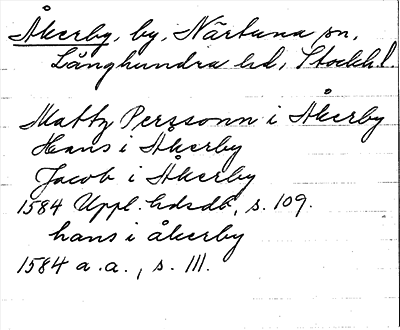 Åkerby, by, Närtuna sn,
Långhundra hd, Stockh l.
Mattz Perssonn i Åkerby
Hans i Åkerby
Jacob i Åkerby
1584 Uppl. hdsdb, s. 109.
hans i åkerby
1584 a.a., s. 111.